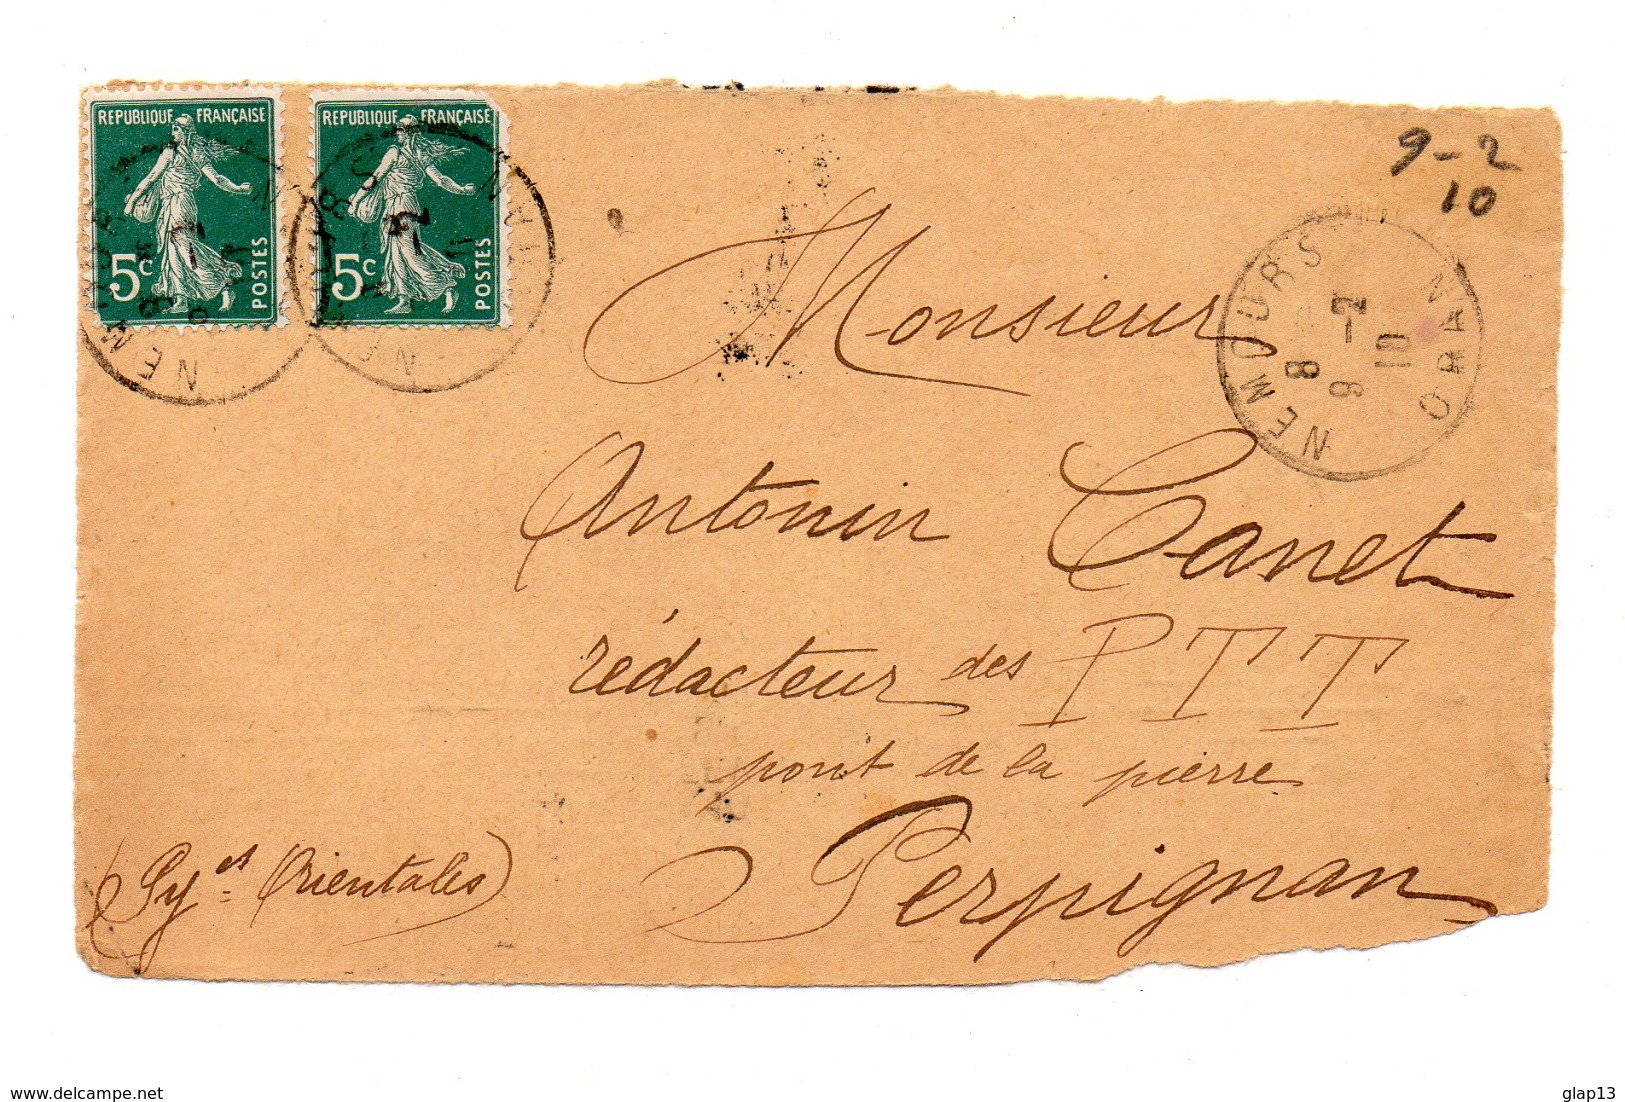 REPUBLIQUE FRANÇAISE
5c
POSTES
REPUBLIQUE FRANÇAISE
5c
POSTES
9-2
10
NEMOURS
ORAN
8
9-2
10
Monsieur
Antonin Canet
rédacteur des PTT
pont de la pierre
Perpignan
(Py.es Orientales)
www.delcampe.net
glap13